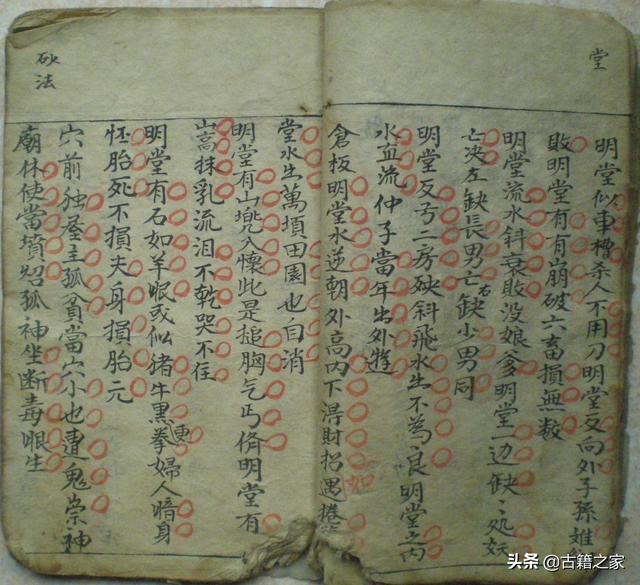 堂
明堂似車槽杀人不用刀明堂反向外子孫
敗明堂有有崩破六畜損無数
明堂流水斜衰敗没娘爹明堂一边缺〻处
亡决左缺長男亡右缺少男同
明堂反弓二房殃斜飛水生不為良明堂之内
水直流仲子當年出外遊
倉板明堂水逆朝外高内下得財招遇捲
堂水生萬項田園也自消
明堂有山兠入懷此是搥胸乞丐脩明堂有
山嵩抹乳流泪不乾哭不住
明堂有石如羊眠或似猪牛黑更拳婦人暗身
怌胎死不損夫身損胎元
穴前独屋主孤貧當穴小也遭鬼祟神
廟休使當墳炤孤神坐断毒眼生
砂法
如
头条@古籍之家